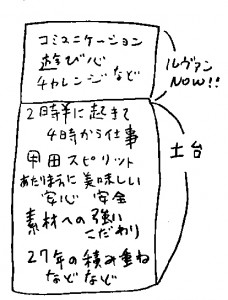 コミュニケーション
遊び心
チャレンジ など
ルヴァン
NOW!!
2時半に起きて
4時から仕事
甲田スピリット
あたりまえに美味しい
安心 安全
素材への強い
こだわり
27年の積み重ね
などなど
土台